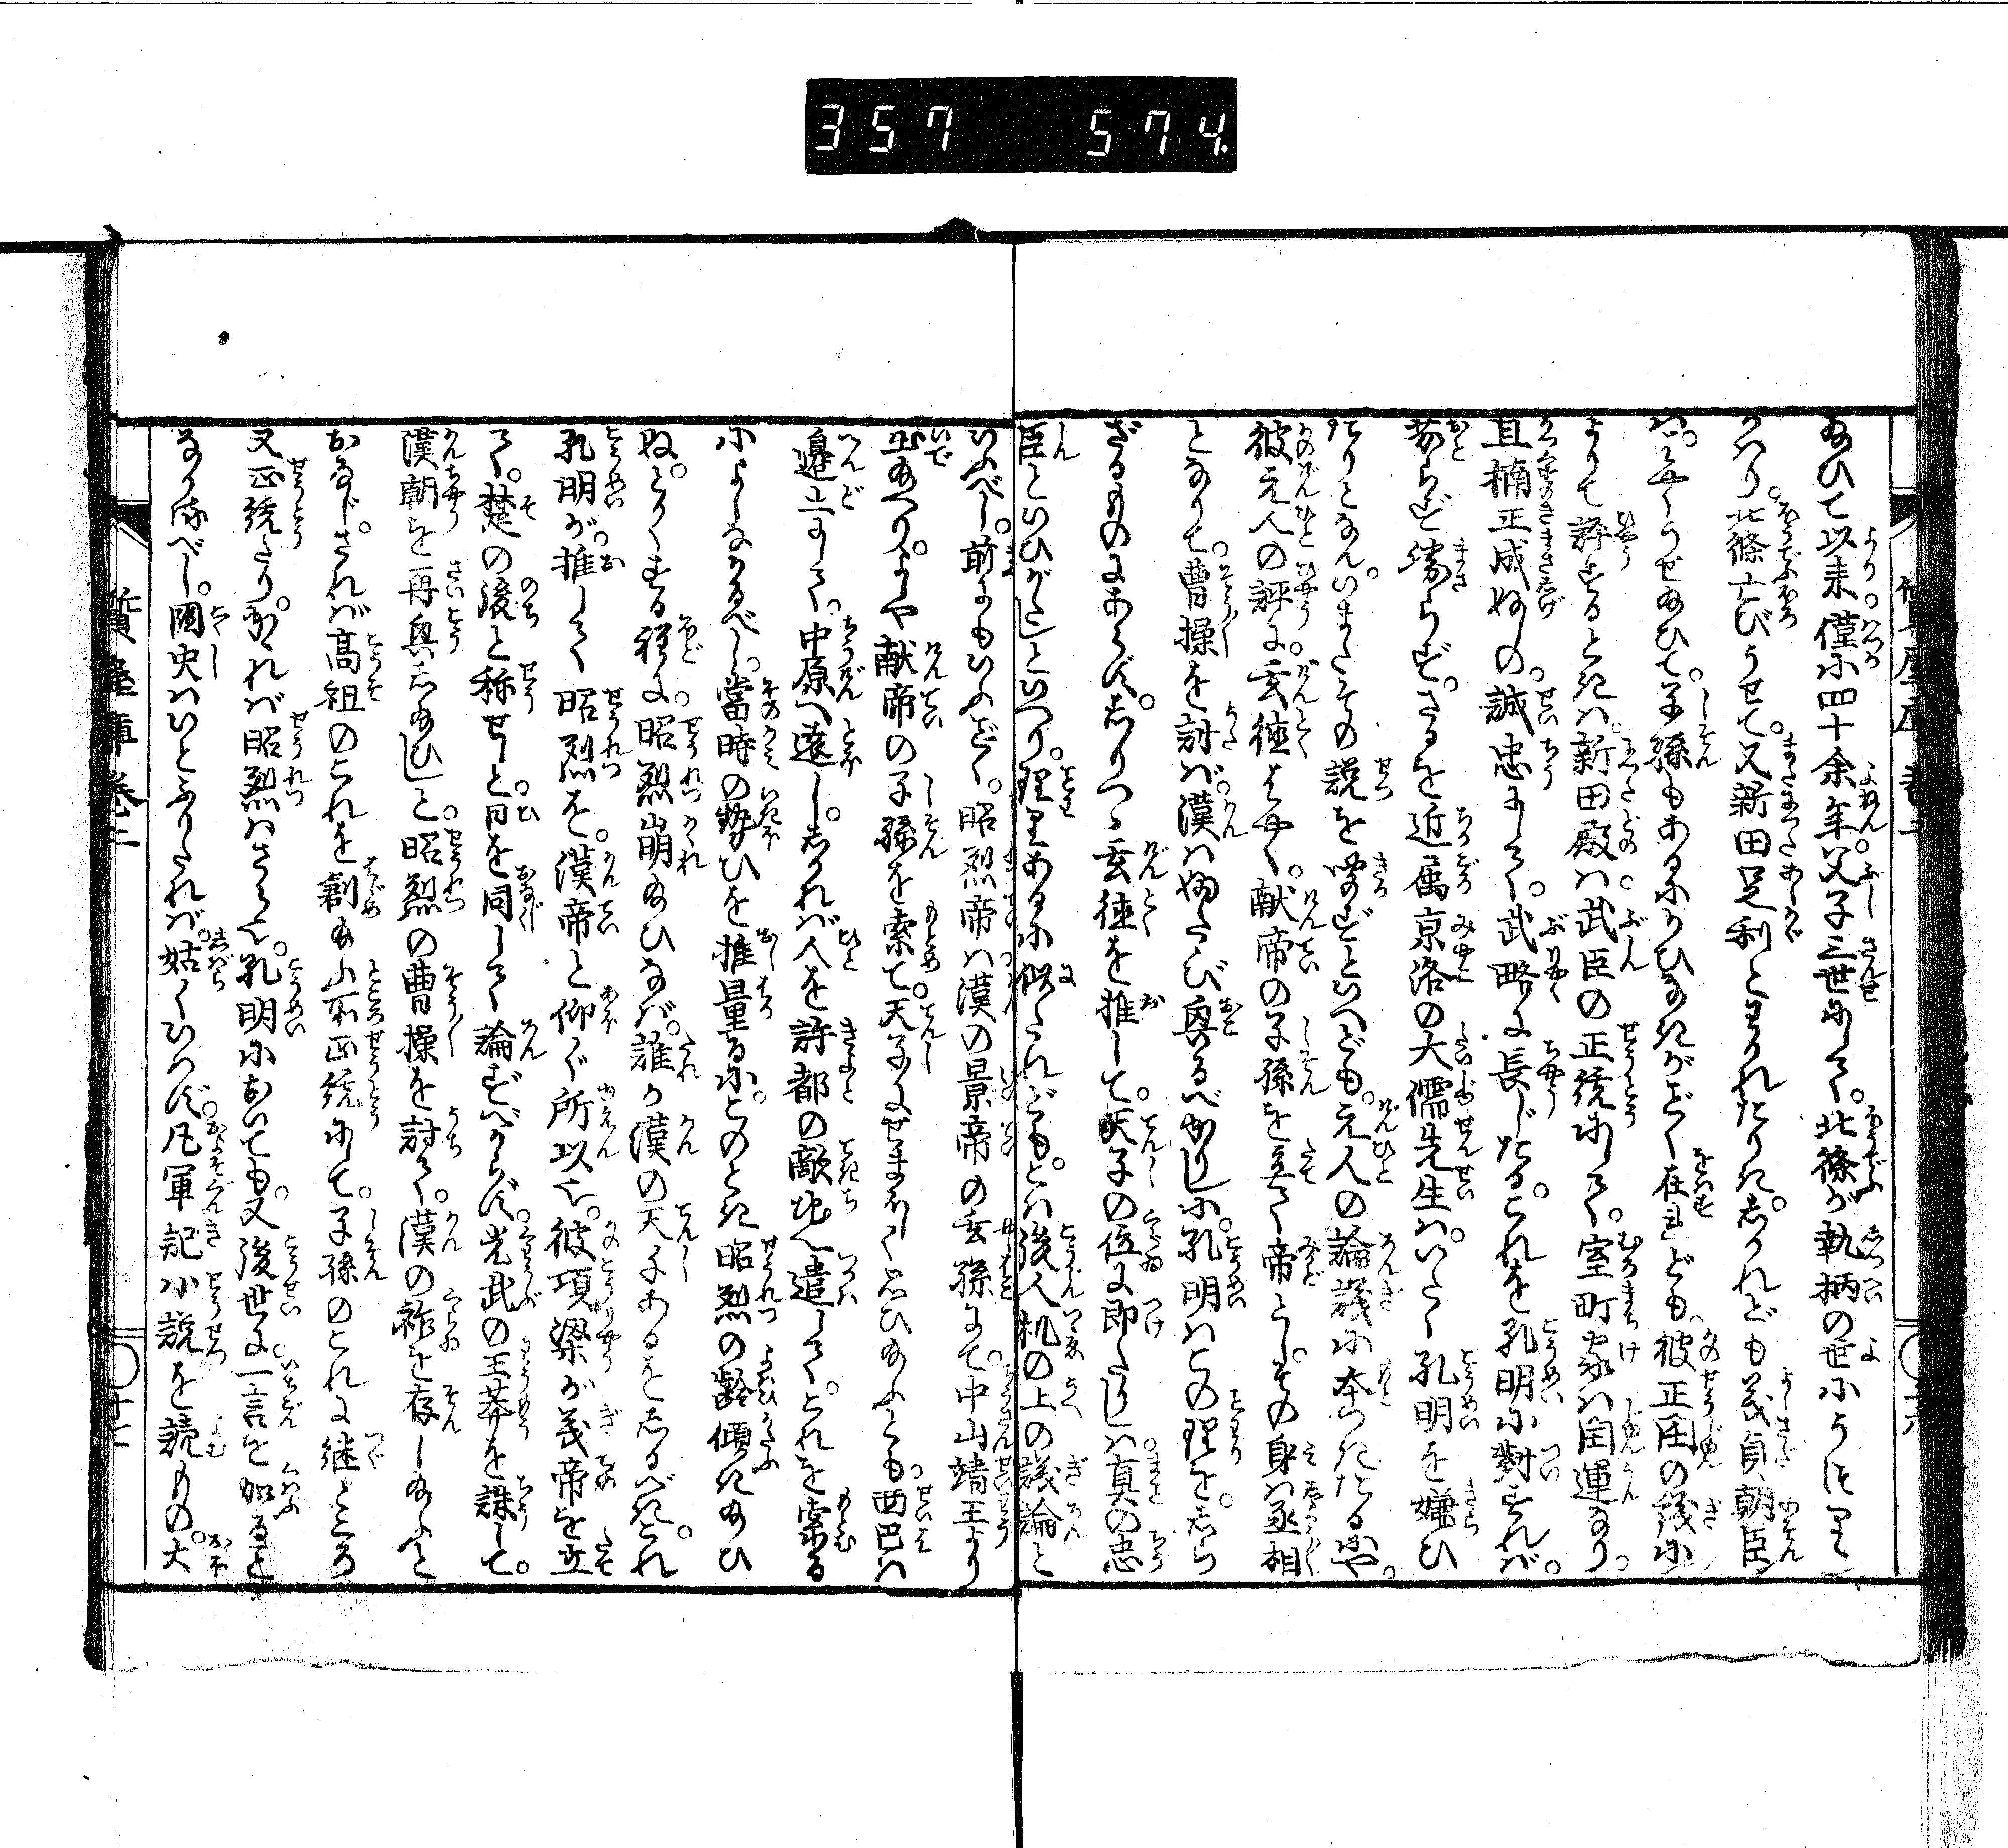 357 574.
給ひて以来僅に四十余年父子三世にして。北條が執柄の世にうつり
かはり。北條亡びうせて。又新田足利とわかれたりき。しかれども義貞朝臣
は。はやくうせ給ひて。子孫もあるにかひなきがごとく在せども。彼正閏の議に
よりて評するときは。新田殿は武臣の正統にして。室町家は閏運なり。
且楠正成ぬしの。誠忠にして。武略に長じたる。これを孔明に對すれば。
劣らず勝らず。さるを近属京洛の大儒先生は。いたく孔明を嫌ひ
たりとなん。いまだその説を聞ずといへども。元人の論議に本づきたるにや。
彼元人の評に。玄徳はやく。献帝の子孫を立て帝とし。その身は丞相
となりて。曹操を討ば。漢は再たび興るべかりしに。孔明はこの理を。しら
ざるものにあらず。しりつゝ玄徳を推して。天子の位に即たりしは。真の忠
臣といひがたしといへり。理りあるに似たれども。とは後人机の上の議論と
いふべし。前にもいふごとく。昭烈帝は漢の景帝の玄孫にて。中山靖王より
出給へり。よしや献帝の子孫を索て。天子にせまほしく思ひ給ふとも。西巴は
邊土にして。中原へ遠し。しかれば人を許都の敵地へ遣して。これを索る
によしなかるべし。當時の勢ひを推量るに。このとき昭烈の齢傾き給ひ
ぬ。とかくする程に。昭烈崩給ひなば。誰か漢の天子あるをしるべき。これ
孔明が推して昭烈を。漢帝と仰ぐ所以也。彼項梁が義帝を立
て。楚の後と称せしと。日を同して論ずべからず。光武の王莽を誅して。
漢朝を再興し給ひしと。昭烈の曹操を討て。漢の祚を存し給ふと
おなじ。されば高祖のこれを創給ふ所正統にて。子孫のこれに継ところ
又正統たり。かゝれば昭烈はさら也。孔明においても。又後世に。一言を加ること
なかるべし。國史はいとふりたれば。姑くいはず。凡軍記小説を読もの。大
質屋庫 巻二